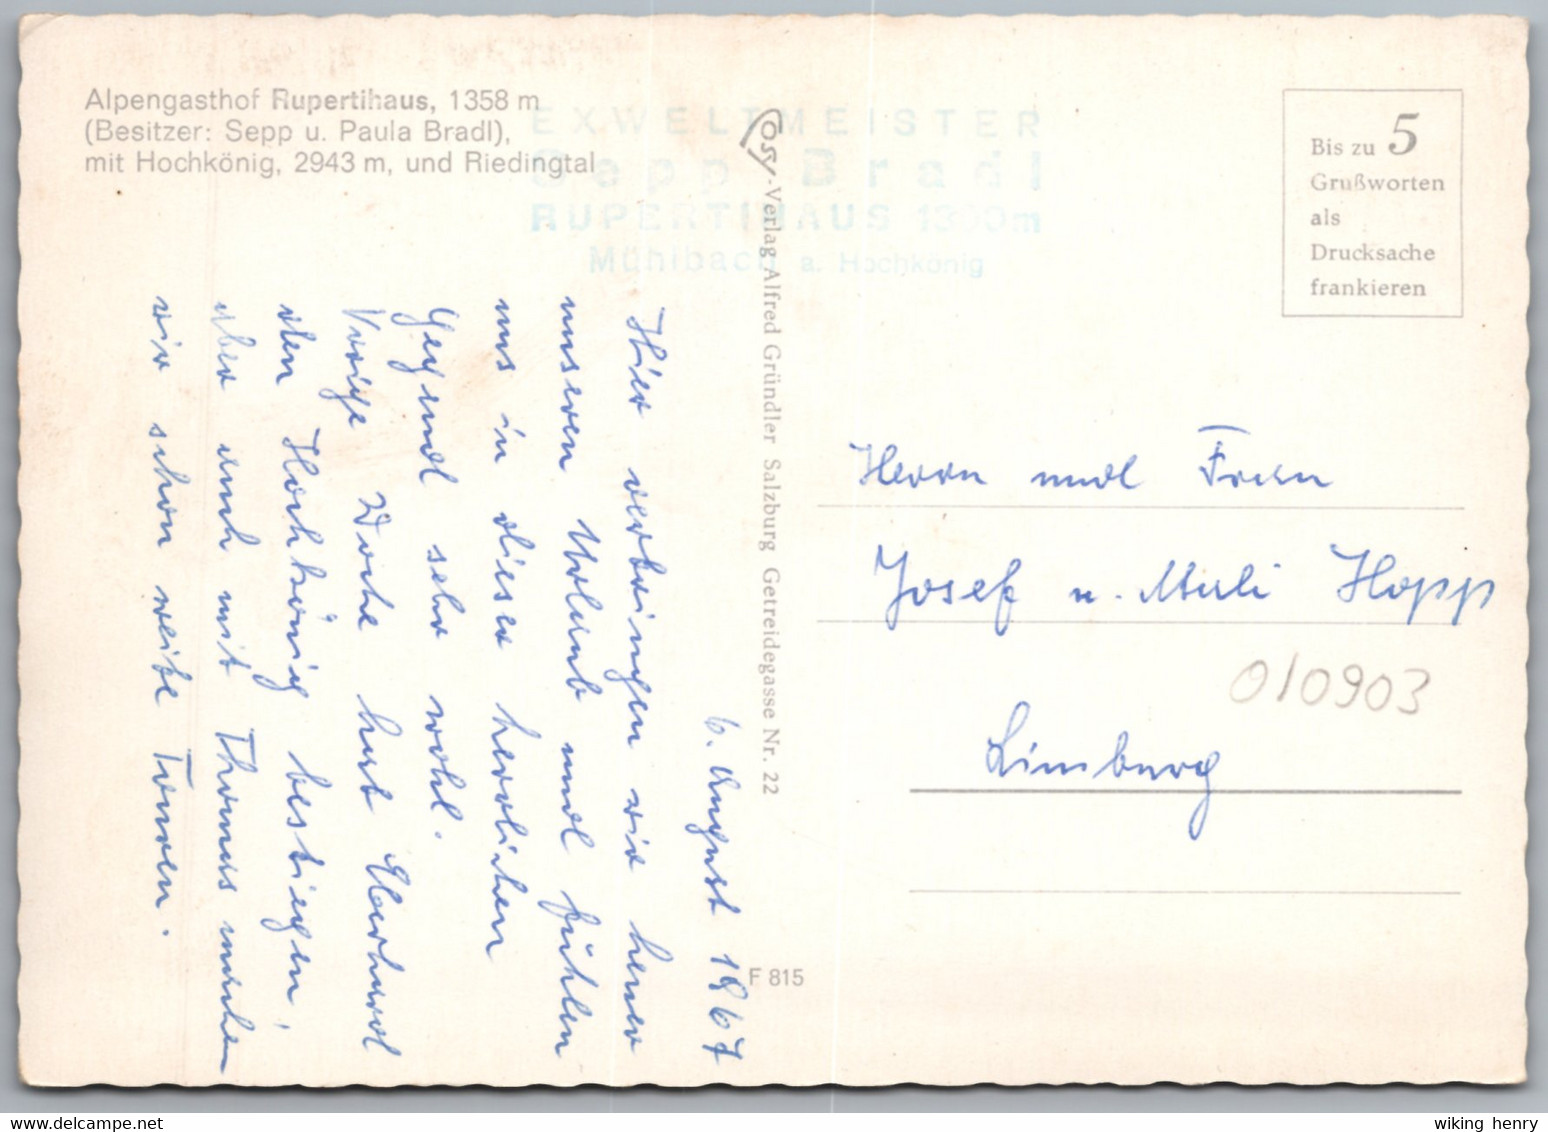 Alpengasthof Rupertihaus, 1358 m
(Besitzer: Sepp u. Paula Bradl),
mit Hochkönig, 2943 m, und Riedingtal
EXWELTMEISTER
Sepp Bradl
RUPERTIHAUS 1300m
Mühlbach a. Hochkönig
Cosy-Verlag Alfred Gründler Salzburg Getreidegasse Nr. 22
F 815
Bis zu 5
Grußworten
als
Drucksache
frankieren
6. August 1967
Hier verbringen wir heuer
unseren Urlaub und fühlen
uns in dieser herrlichen
Gegend sehr wohl.
Vorige Woche hat Eberhard
den Hochkönig bestiegen,
aber auch mit Thomas machen
wir schon weite Touren.
Herrn und Frau
Josef u. Mali Hopp
010903
Limburg
wiking henry